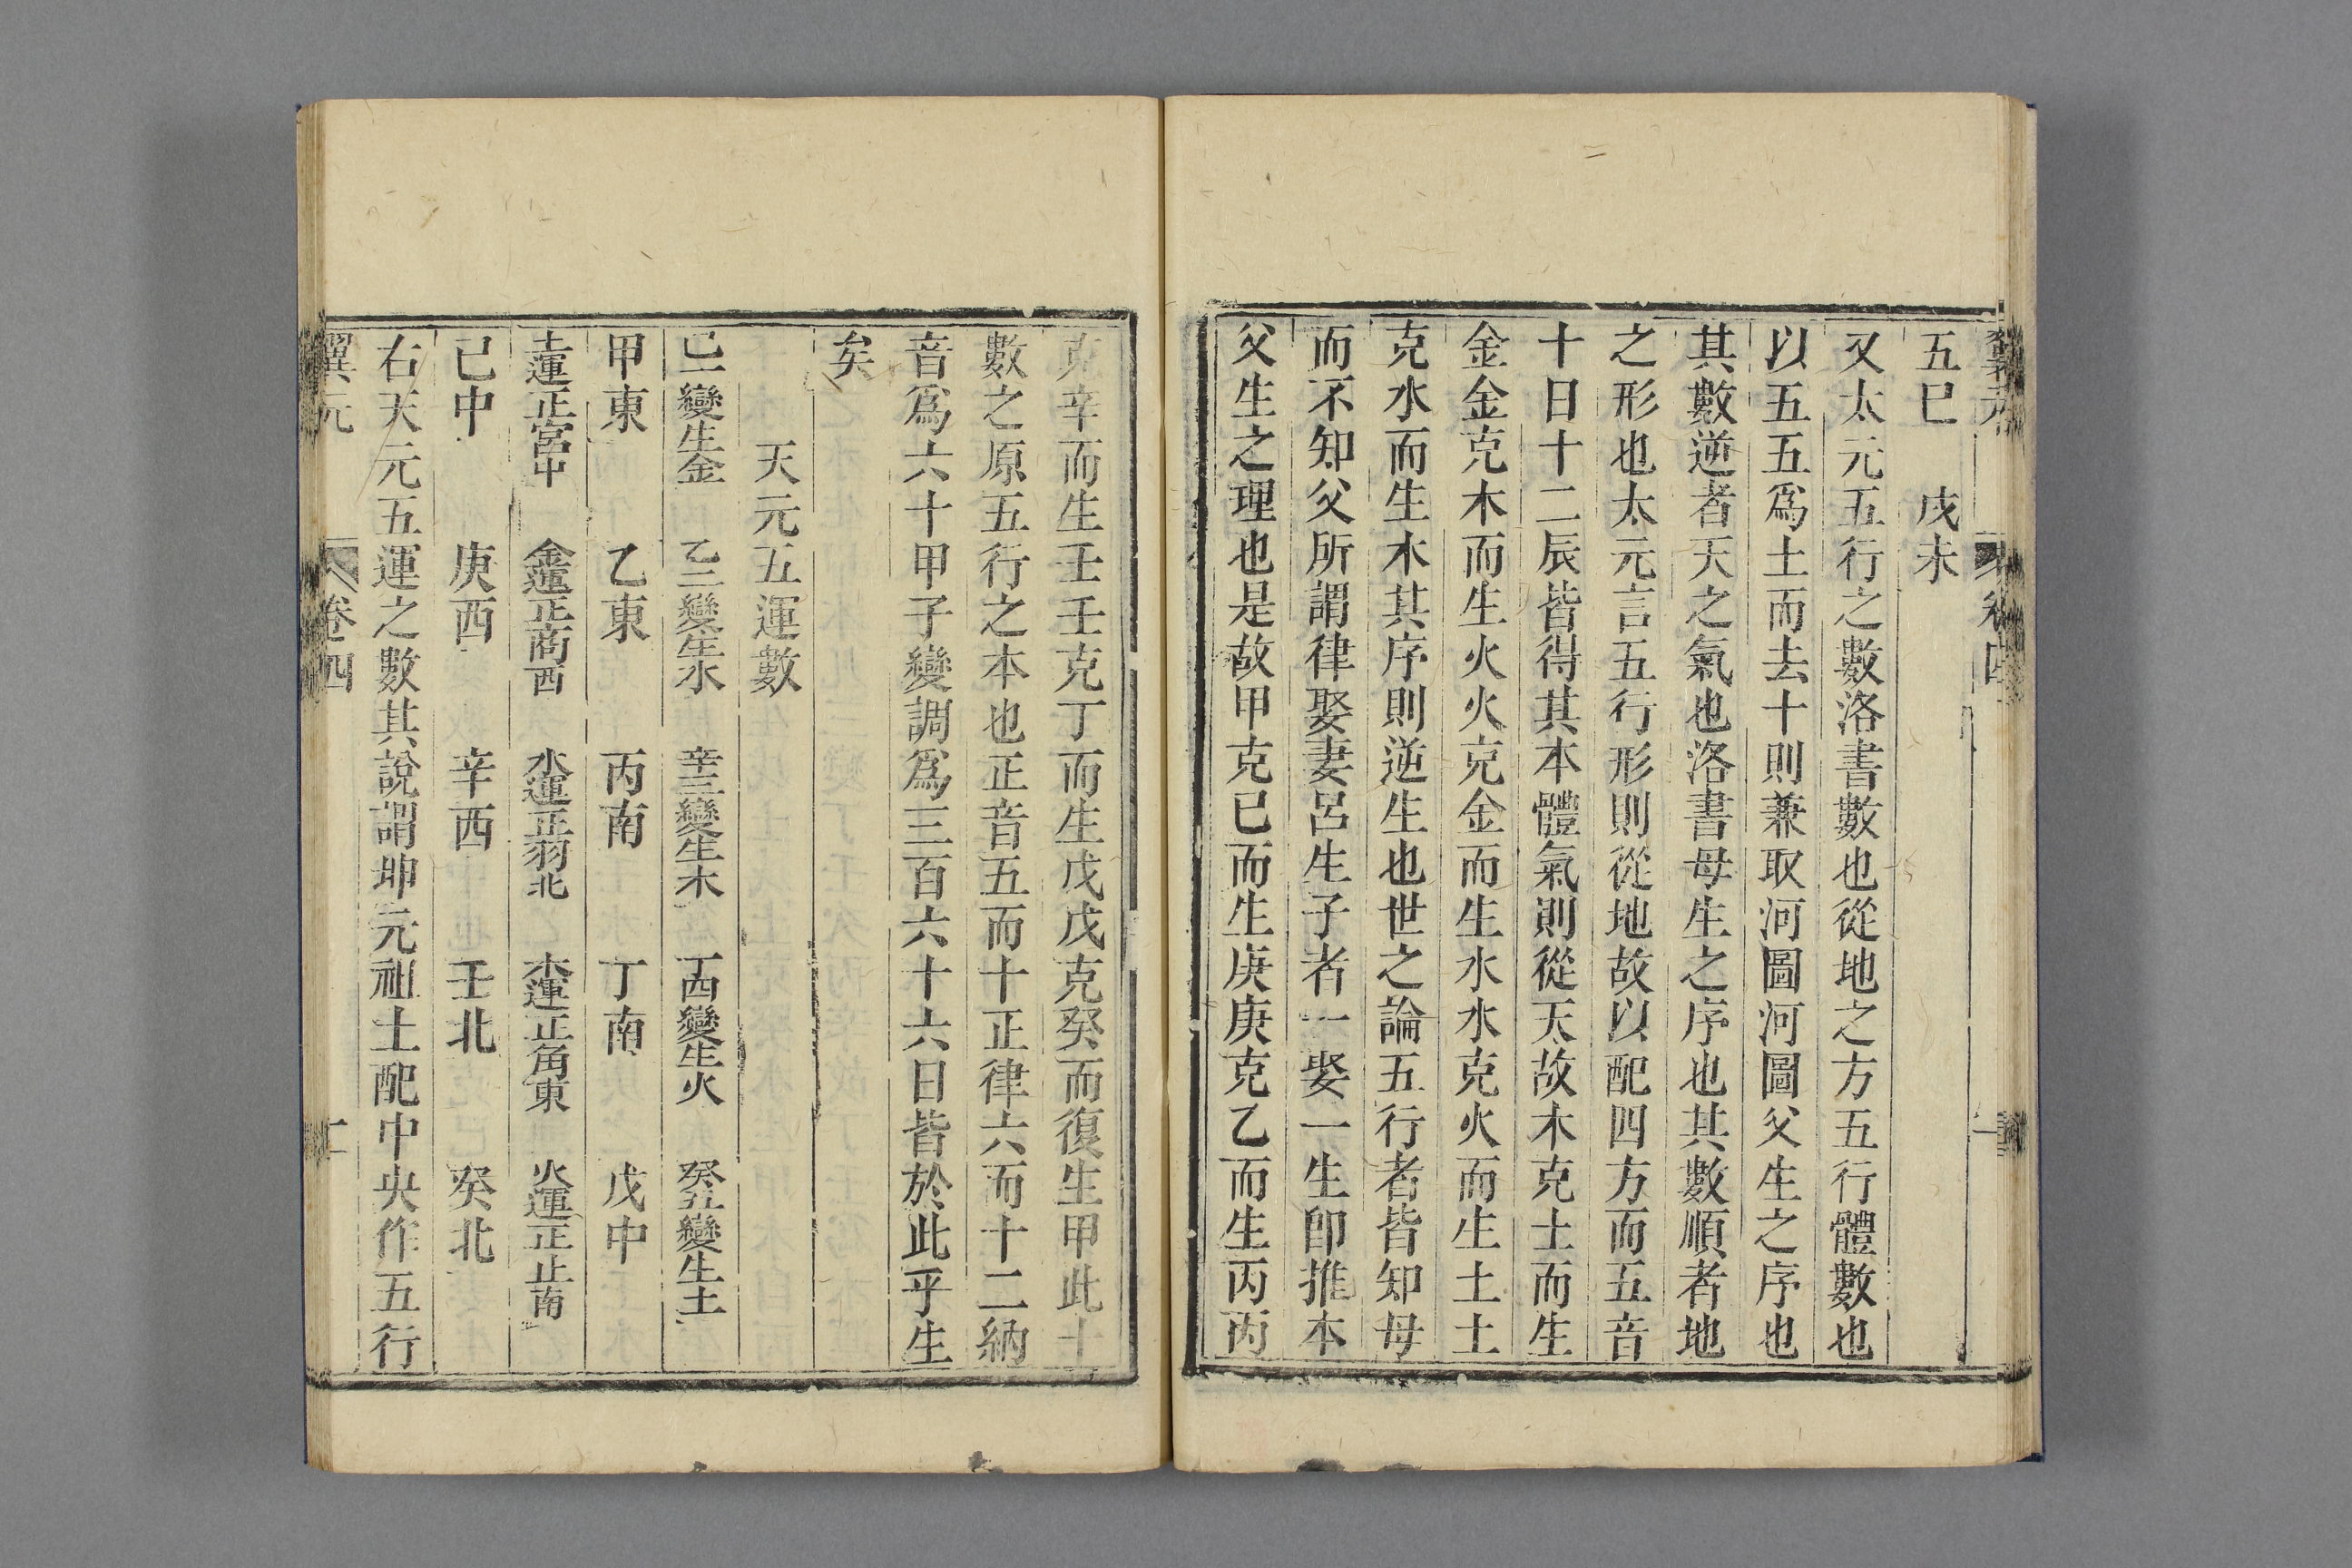 翼元 卷四
五巳 戊未
又太元五行之數洛書數也從地之方五行體數也
以五五爲土而去十則兼取河圖河圖父生之序也
其數逆者天之氣也洛書母生之序也其數順者地
之形也太元言五行形則從地故以配四方而五音
十日十二辰皆得其本體氣則從天故木克土而生
金金克木而生火火克金而生水水克火而生土土
克水而生木其序則逆生也世之論五行者皆知母
而不知父所謂律娶妻呂生子者一娶一生卽推本
父生之理也是故甲克已而生庚庚克乙而生丙丙
克辛而生壬壬克丁而生戊戊克癸而復生甲此十
數之原五行之本也正音五而十正律六而十二納
音爲六十甲子變調爲三百六十六日皆於此乎生
矣
天元五運數
已一變生金 乙二變生水 辛三變生木 丁四變生火 癸五變生土
甲東 乙東 丙南 丁南 戊中
土運正宮中 金運正商西 水運正羽北 木運正角東 火運正止南
已中 庚西 辛西 壬北 癸北
右天元五運之數其說謂坤元祖土配中央作五行
翼元 卷四